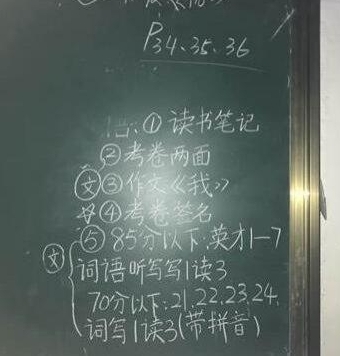 P34.35.36
①读书笔记
②考卷两面
文③作文《我》
④考卷签名
⑤85分以下:英才1-7
文
词语听写写1读3
70分以下:21.22.23.24.
词写1读3(带拼音)